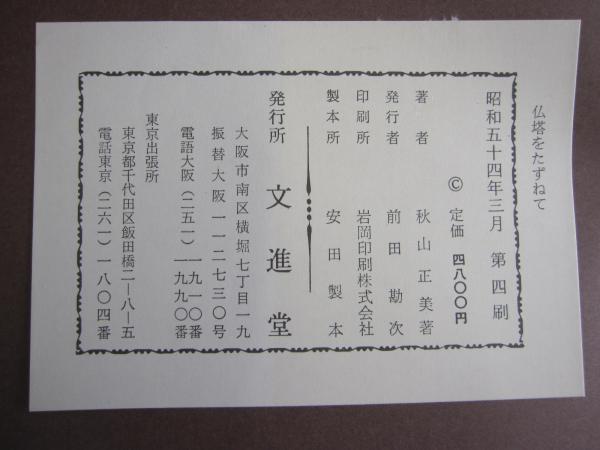 仏塔をたずねて
昭和五十四年三月 第四刷
© 定価 四八〇〇円
著者 秋山正美著
発行者 前田勘次
印刷所 岩岡印刷株式会社
製本所 安田製本
発行所 文進堂
大阪市南区横堀七丁目一九
振替大阪一一二七三〇号
電話大阪(二五一)一九一〇番
一九九〇番
東京出張所
東京都千代田区飯田橋二ー八ー五
電話東京(二六一)一八〇四番